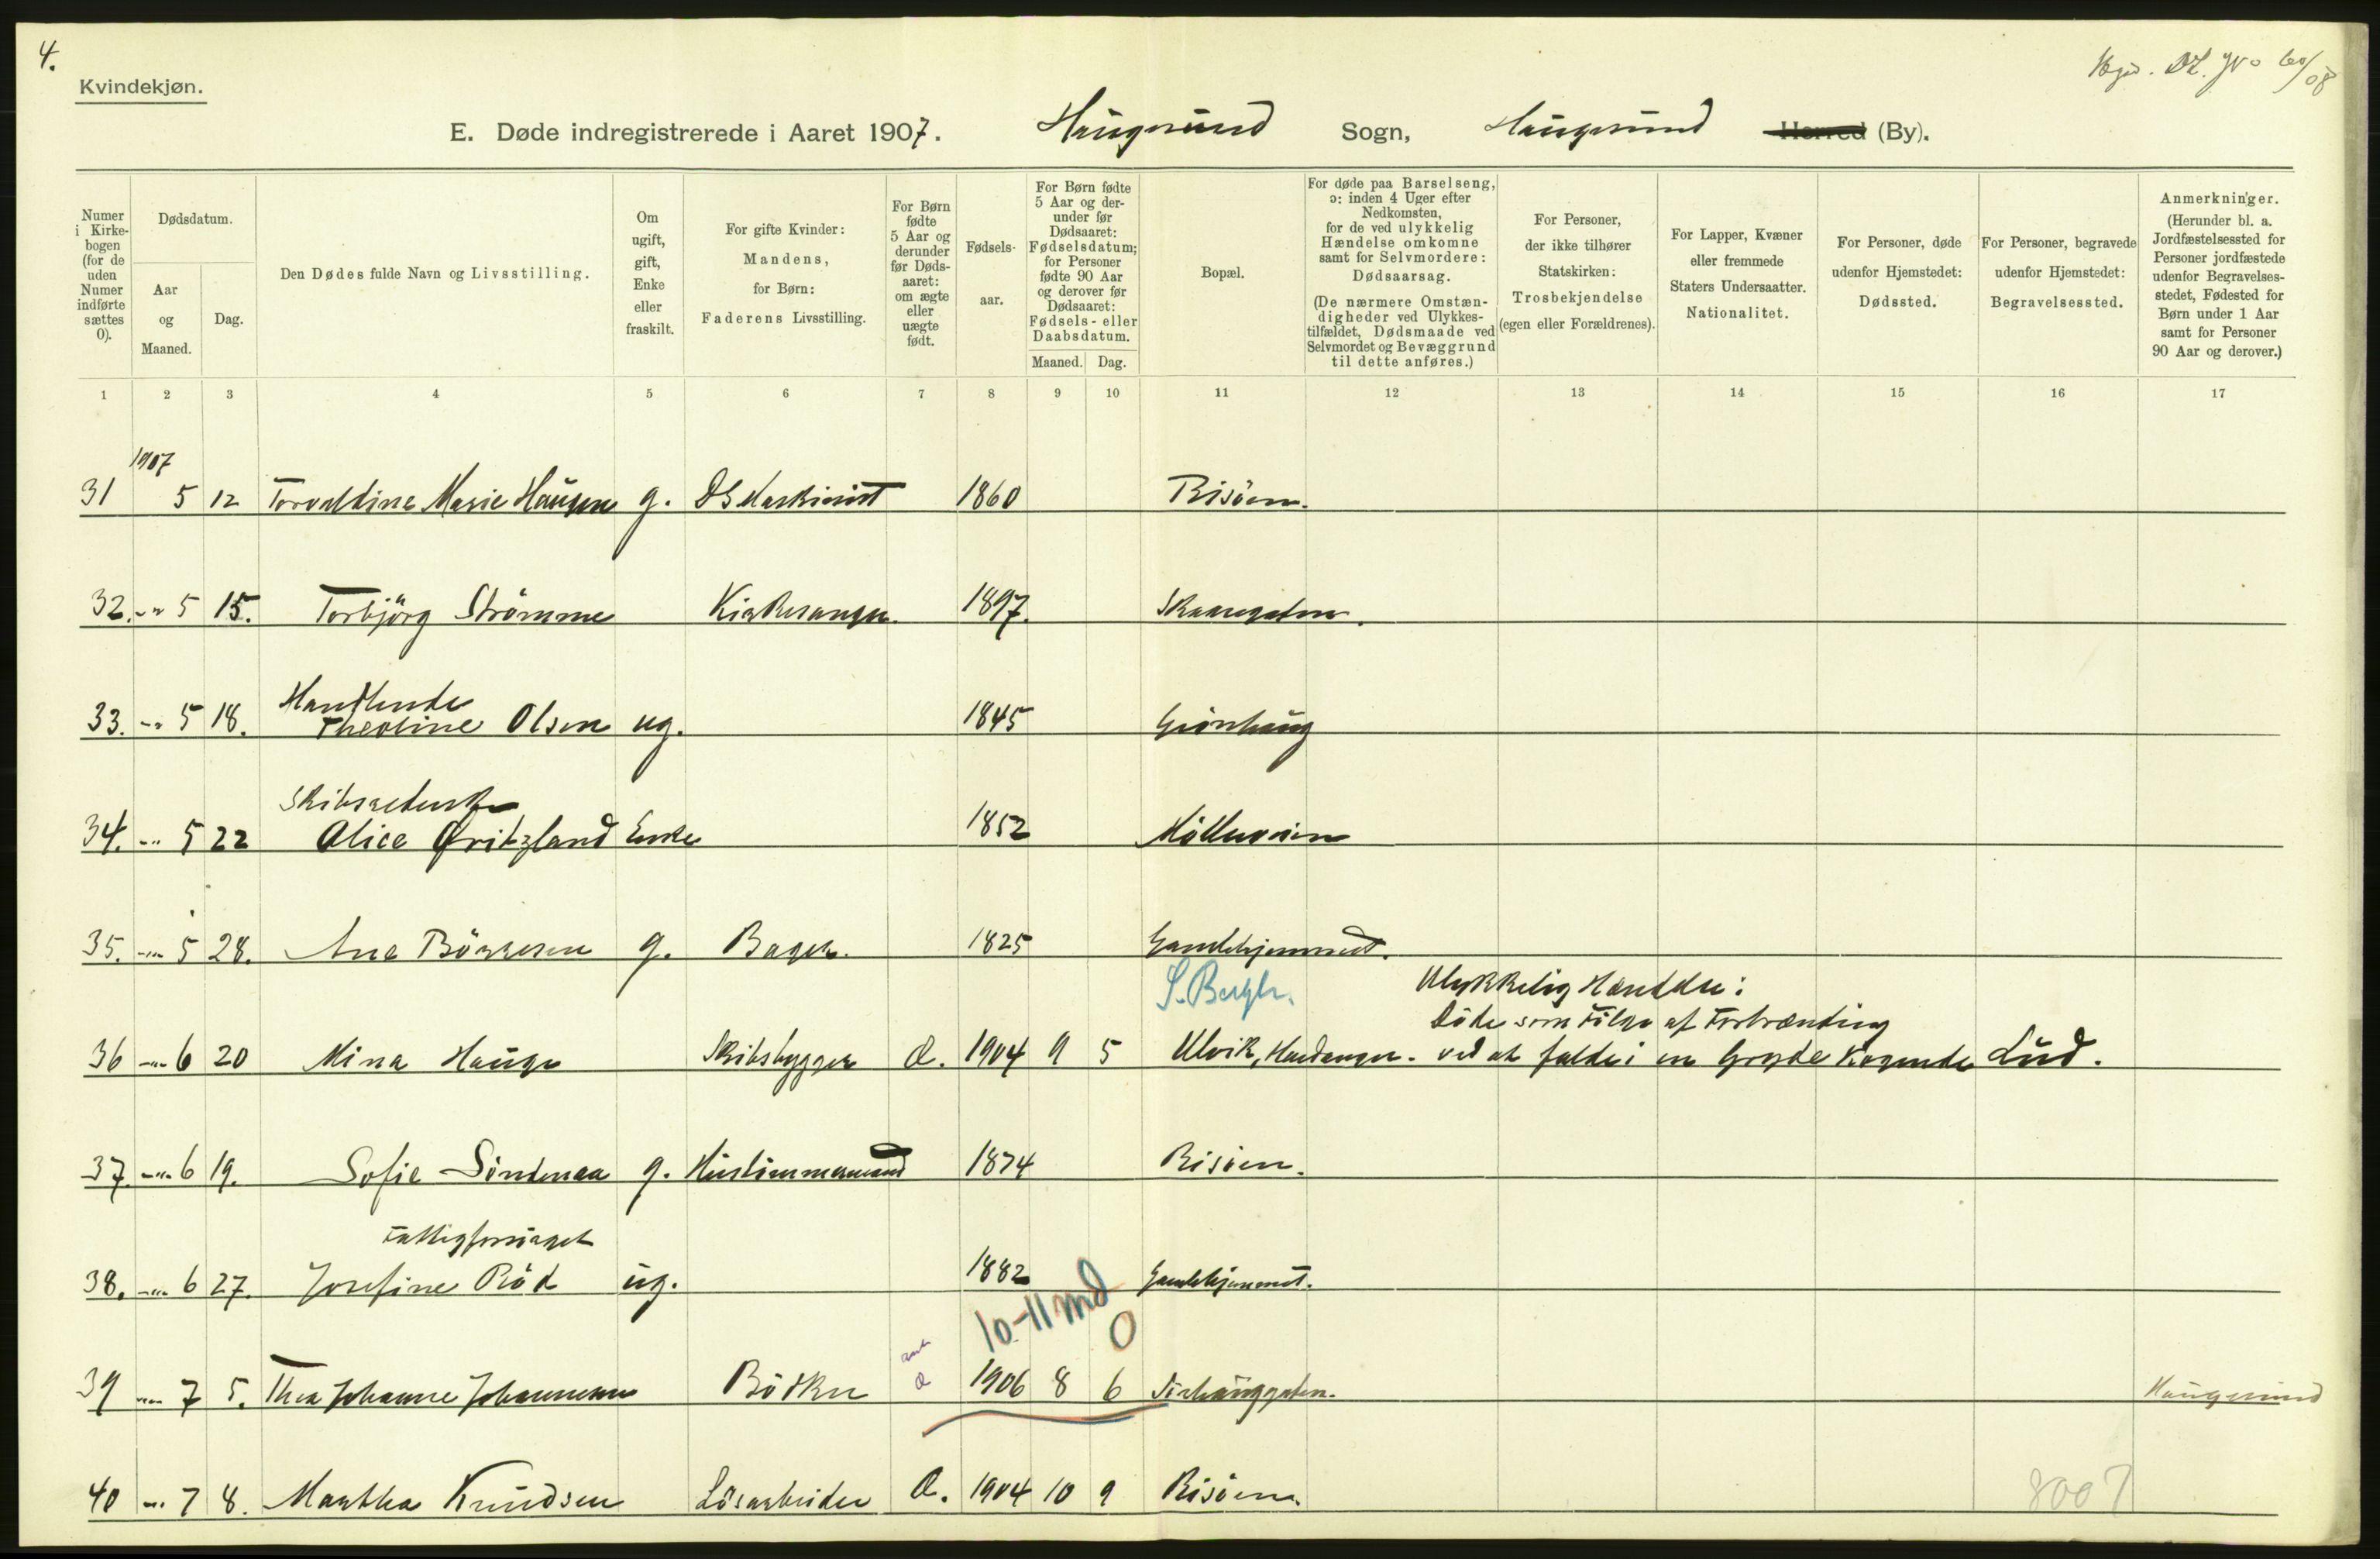 4.
Kvindekjøn.
E. Døde indregistrerede i Aaret 1907. Haugesund Sogn, Haugesund Herred (By).
Numer i Kirkebogen (for de uden Numer indførte sættes 0).
Dødsdatum.
Aar og Maaned.
Dag.
Den Dødes fulde Navn og Livsstilling.
Om ugift, gift, Enke eller fraskilt.
For gifte Kvinder: Mandens, for Børn: Faderens Livsstilling.
For Børn fødte 5 Aar og derunder før Dødsaaret: om ægte eller uægte født.
Fødselsaar.
For Børn fødte 5 Aar og derunder før Dødsaaret: Fødselsdatum; for Personer fødte 90 Aar og derover før Dødsaaret: Fødsels- eller Daabsdatum.
Maaned. Dag.
Bopæl.
For døde paa Barselseng, ɔ: inden 4 Uger efter Nedkomsten, for de ved ulykkelig Hændelse omkomne samt for Selvmordere: Dødsaarsag.
(De nærmere Omstændigheder ved Ulykkestilfældet, Dødsmaade ved Selvmordet og Bevæggrund til dette anføres.)
For Personer, der ikke tilhører Statskirken: Trosbekjendelse (egen eller Forældrenes).
For Lapper, Kvæner eller fremmede Staters Undersaatter. Nationalitet.
For Personer, døde udenfor Hjemstedet: Dødssted.
For Personer, begravede udenfor Hjemstedet: Begravelsessted.
Anmerkninger. (Herunder bl. a. Jordfæstelsessted for Personer jordfæstede udenfor Begravelsesstedet, Fødested for Børn under 1 Aar samt for Personer 90 Aar og derover.)
1 2 3 4 5 6 7 8 9 10 11 12 13 14 15 16 17
1907
31 5 12 Torvaldine Marie Haugen g. DS Maskinist 1860 Risöen.
32. -"- 5 15. Torbjörg Strömme Kirkesanger. 1897. Skaaregaten.
Handlende
33. -"- 5 18. Theoline Olsen ug. 1845 Grönhaug
34. -"- 5 22 Alice Qvitzland Enke 1852 Möllerveien
35. -"- 5 28. Ane Börresen g. Bager. 1825 Gamlehjemmet.
S. Bergh. Ulykkelig Hændelse:
Döde som Fölge af Forbrænding
36 -"- 6 20 Mina Hauge Skibsbygger Æ. 1904 9 5 Ulvik, Hardanger. ved at falde i en Gryde Kogende Lud.
37. -"- 6 19. Sofie Söndenaa g. Hustömmermand 1874 Risöen.
Fattigforsörget
38. -"- 6 27. Josefine Röd ug. 1882 Gamlehjemmet.
10-11 md
0
39 -"- 7 5. Thea Johanne Johannesen Bödker Æ 1906 8 6 Sörhauggaten. Haugesund
40 -"- 7 8. Martha Knudsen Lösarbeider Æ. 1904 10 9 Risöen.
8007